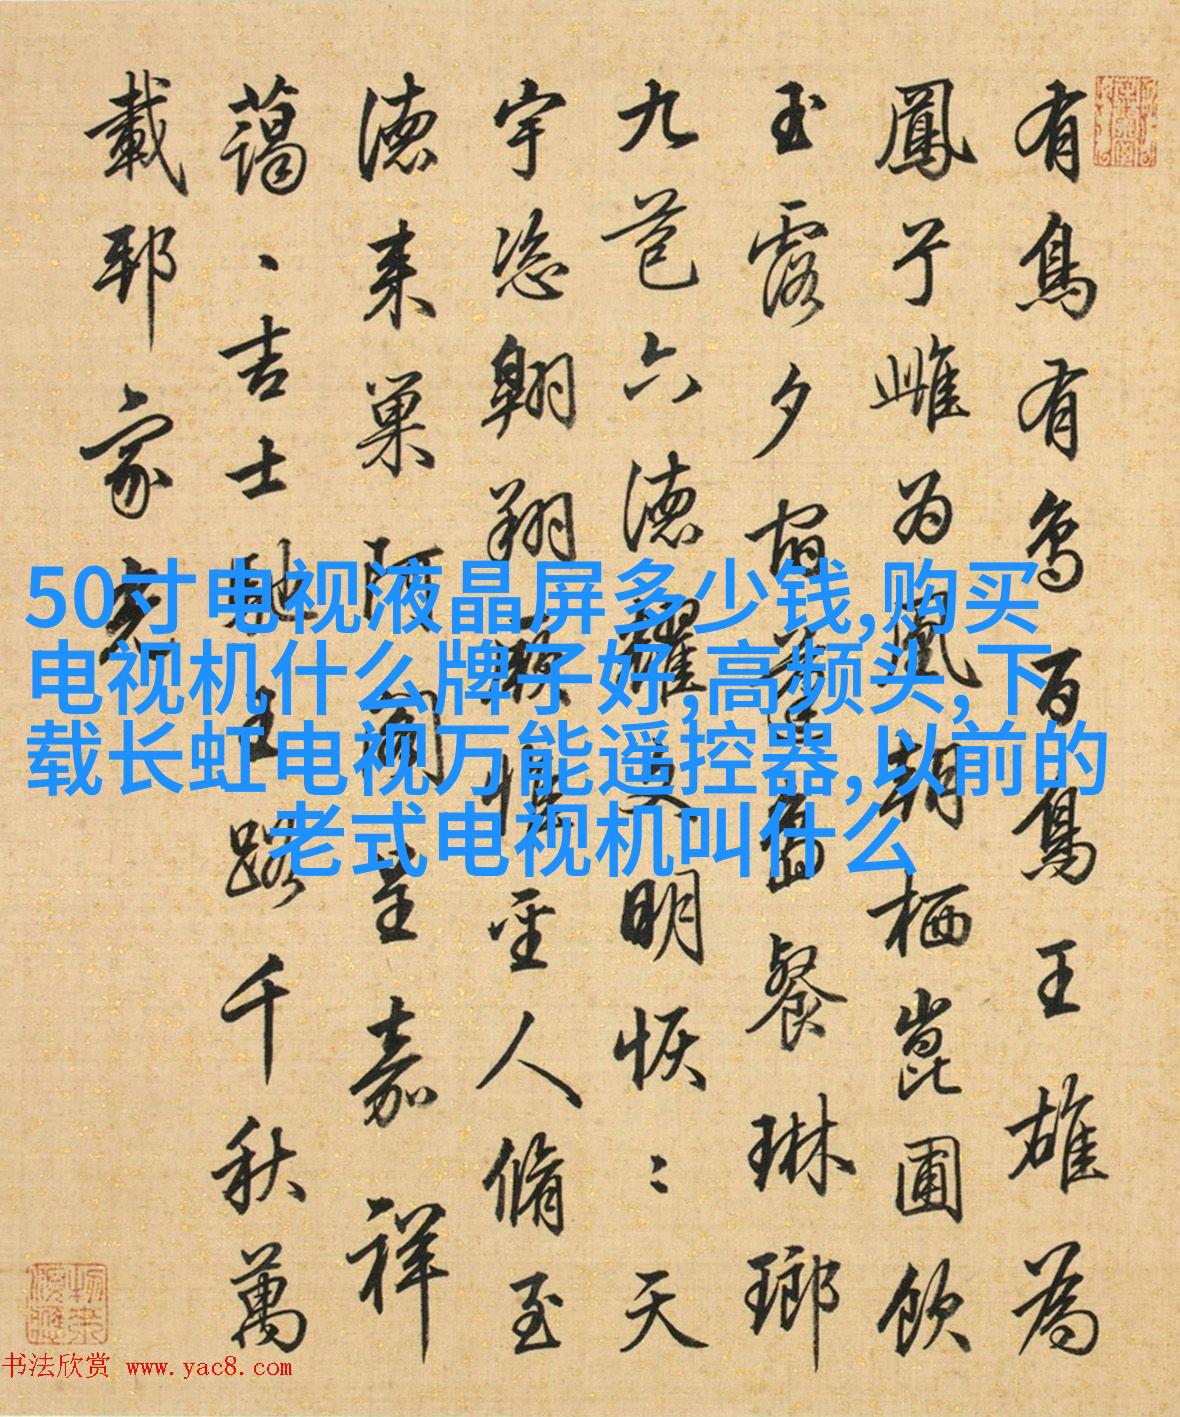 有鳥有鳥百鳥王雄為
鳳兮雌為凰朝栖崑圃飲
玉露夕宿島餐琳瑯
九苞六德耀文明恢:天
宇恣翱翔顧懷聖人脩至
德来巢阿閣呈嘉祥
藹、吉士馳王路千秋萬
載邦家光
50寸电视液晶屏多少钱,购买
电视机什么牌子好,高频头,下
载长虹电视万能遥控器,以前的
老式电视机叫什么
书法欣赏 www.yac8.com